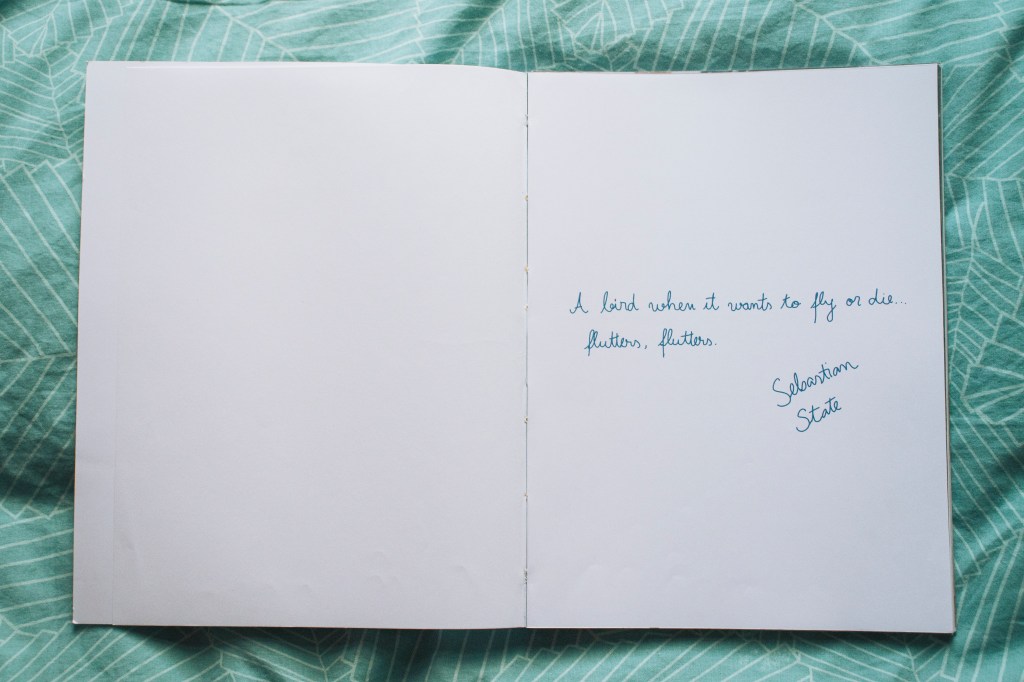 A bird when it wants to fly or die...
flutters, flutters.
Sebastian
State